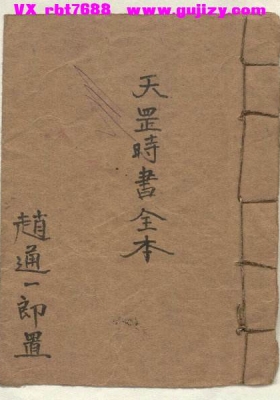 VX rbt7688 www.gujizy.com
天罡時書全本
趙通一郎置